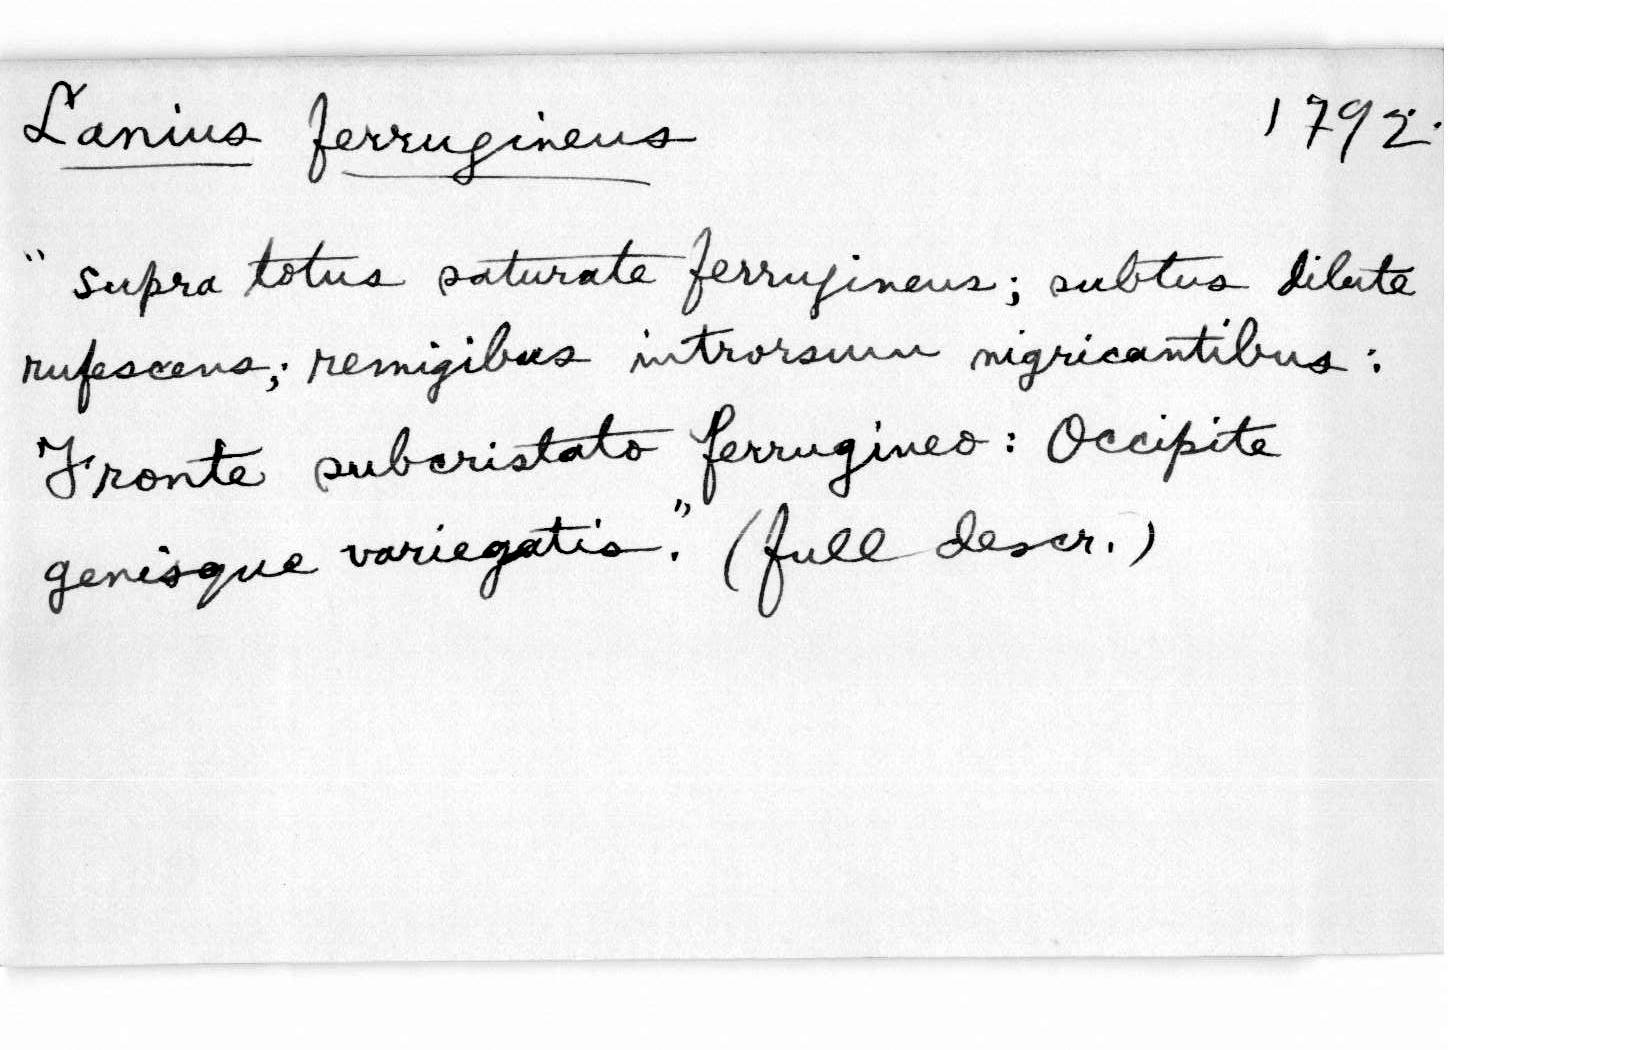 Lanius ferrugineus 1792.
"Supra totus saturate ferrugineus; subtus dilute
rufescens; remigibus introrsum nigricantibus:
Fronte subcristato ferrugineo: Occipite
genisque variegatis." (full descr.)